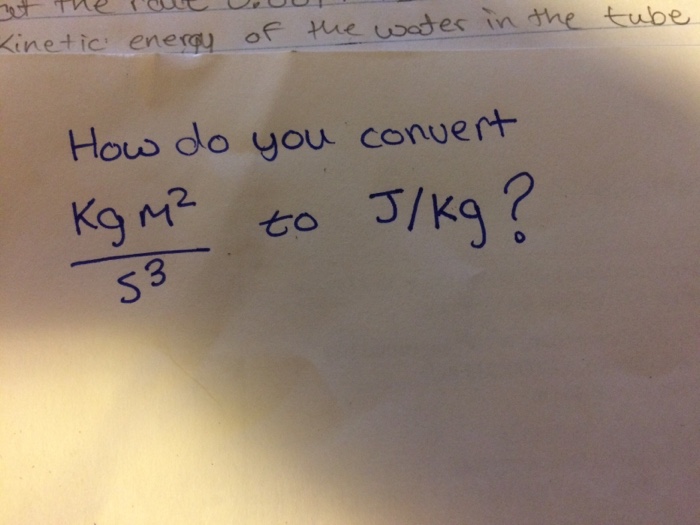 at the rate
Kinetic energy of the water in the tube
How do you convert
Kg M² to J/Kg?
S³